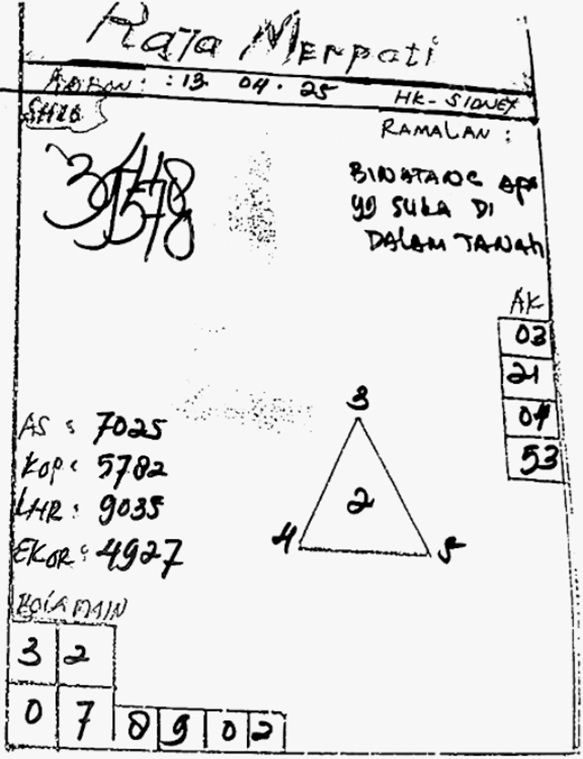 Raja Merpati
: 13 04 . 25
HK - SIDNEY
RAMALAN :
BINATANG apa
yg SUKA DI
DALAM TANAH
AK
03
21
04
53
AS : 7025
KOP : 5782
LHR : 9035
EKOR : 4927
3
2
4 5
BOLA MAIN
3 2
0 7 8 9 0 2